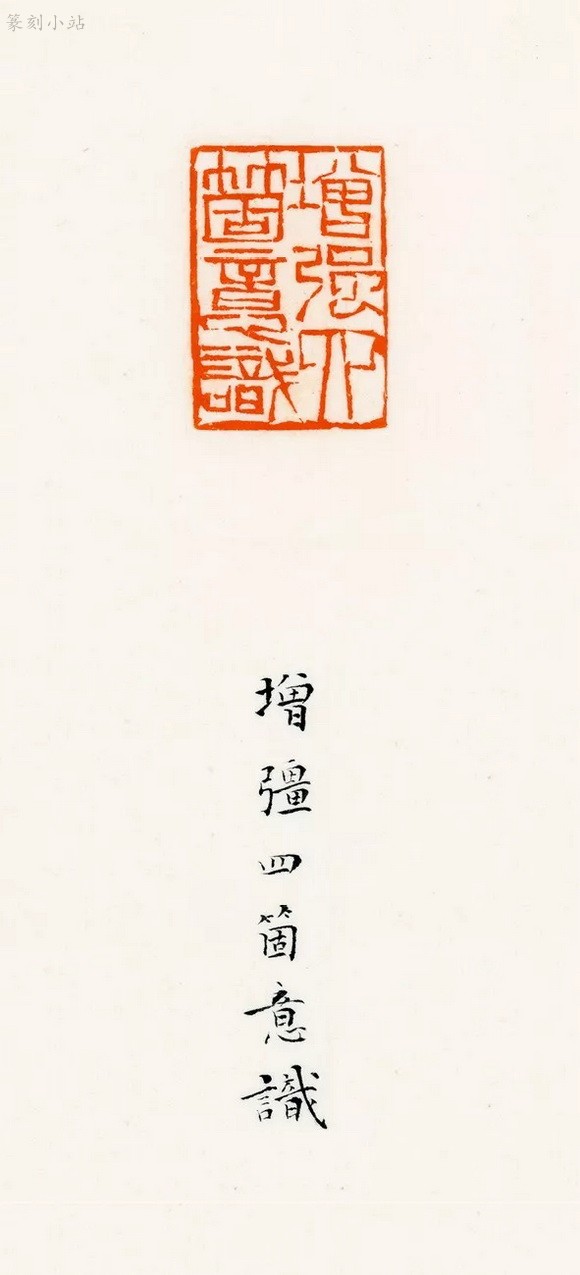 篆刻小站
增彊四
箇意識
增彊四箇意識